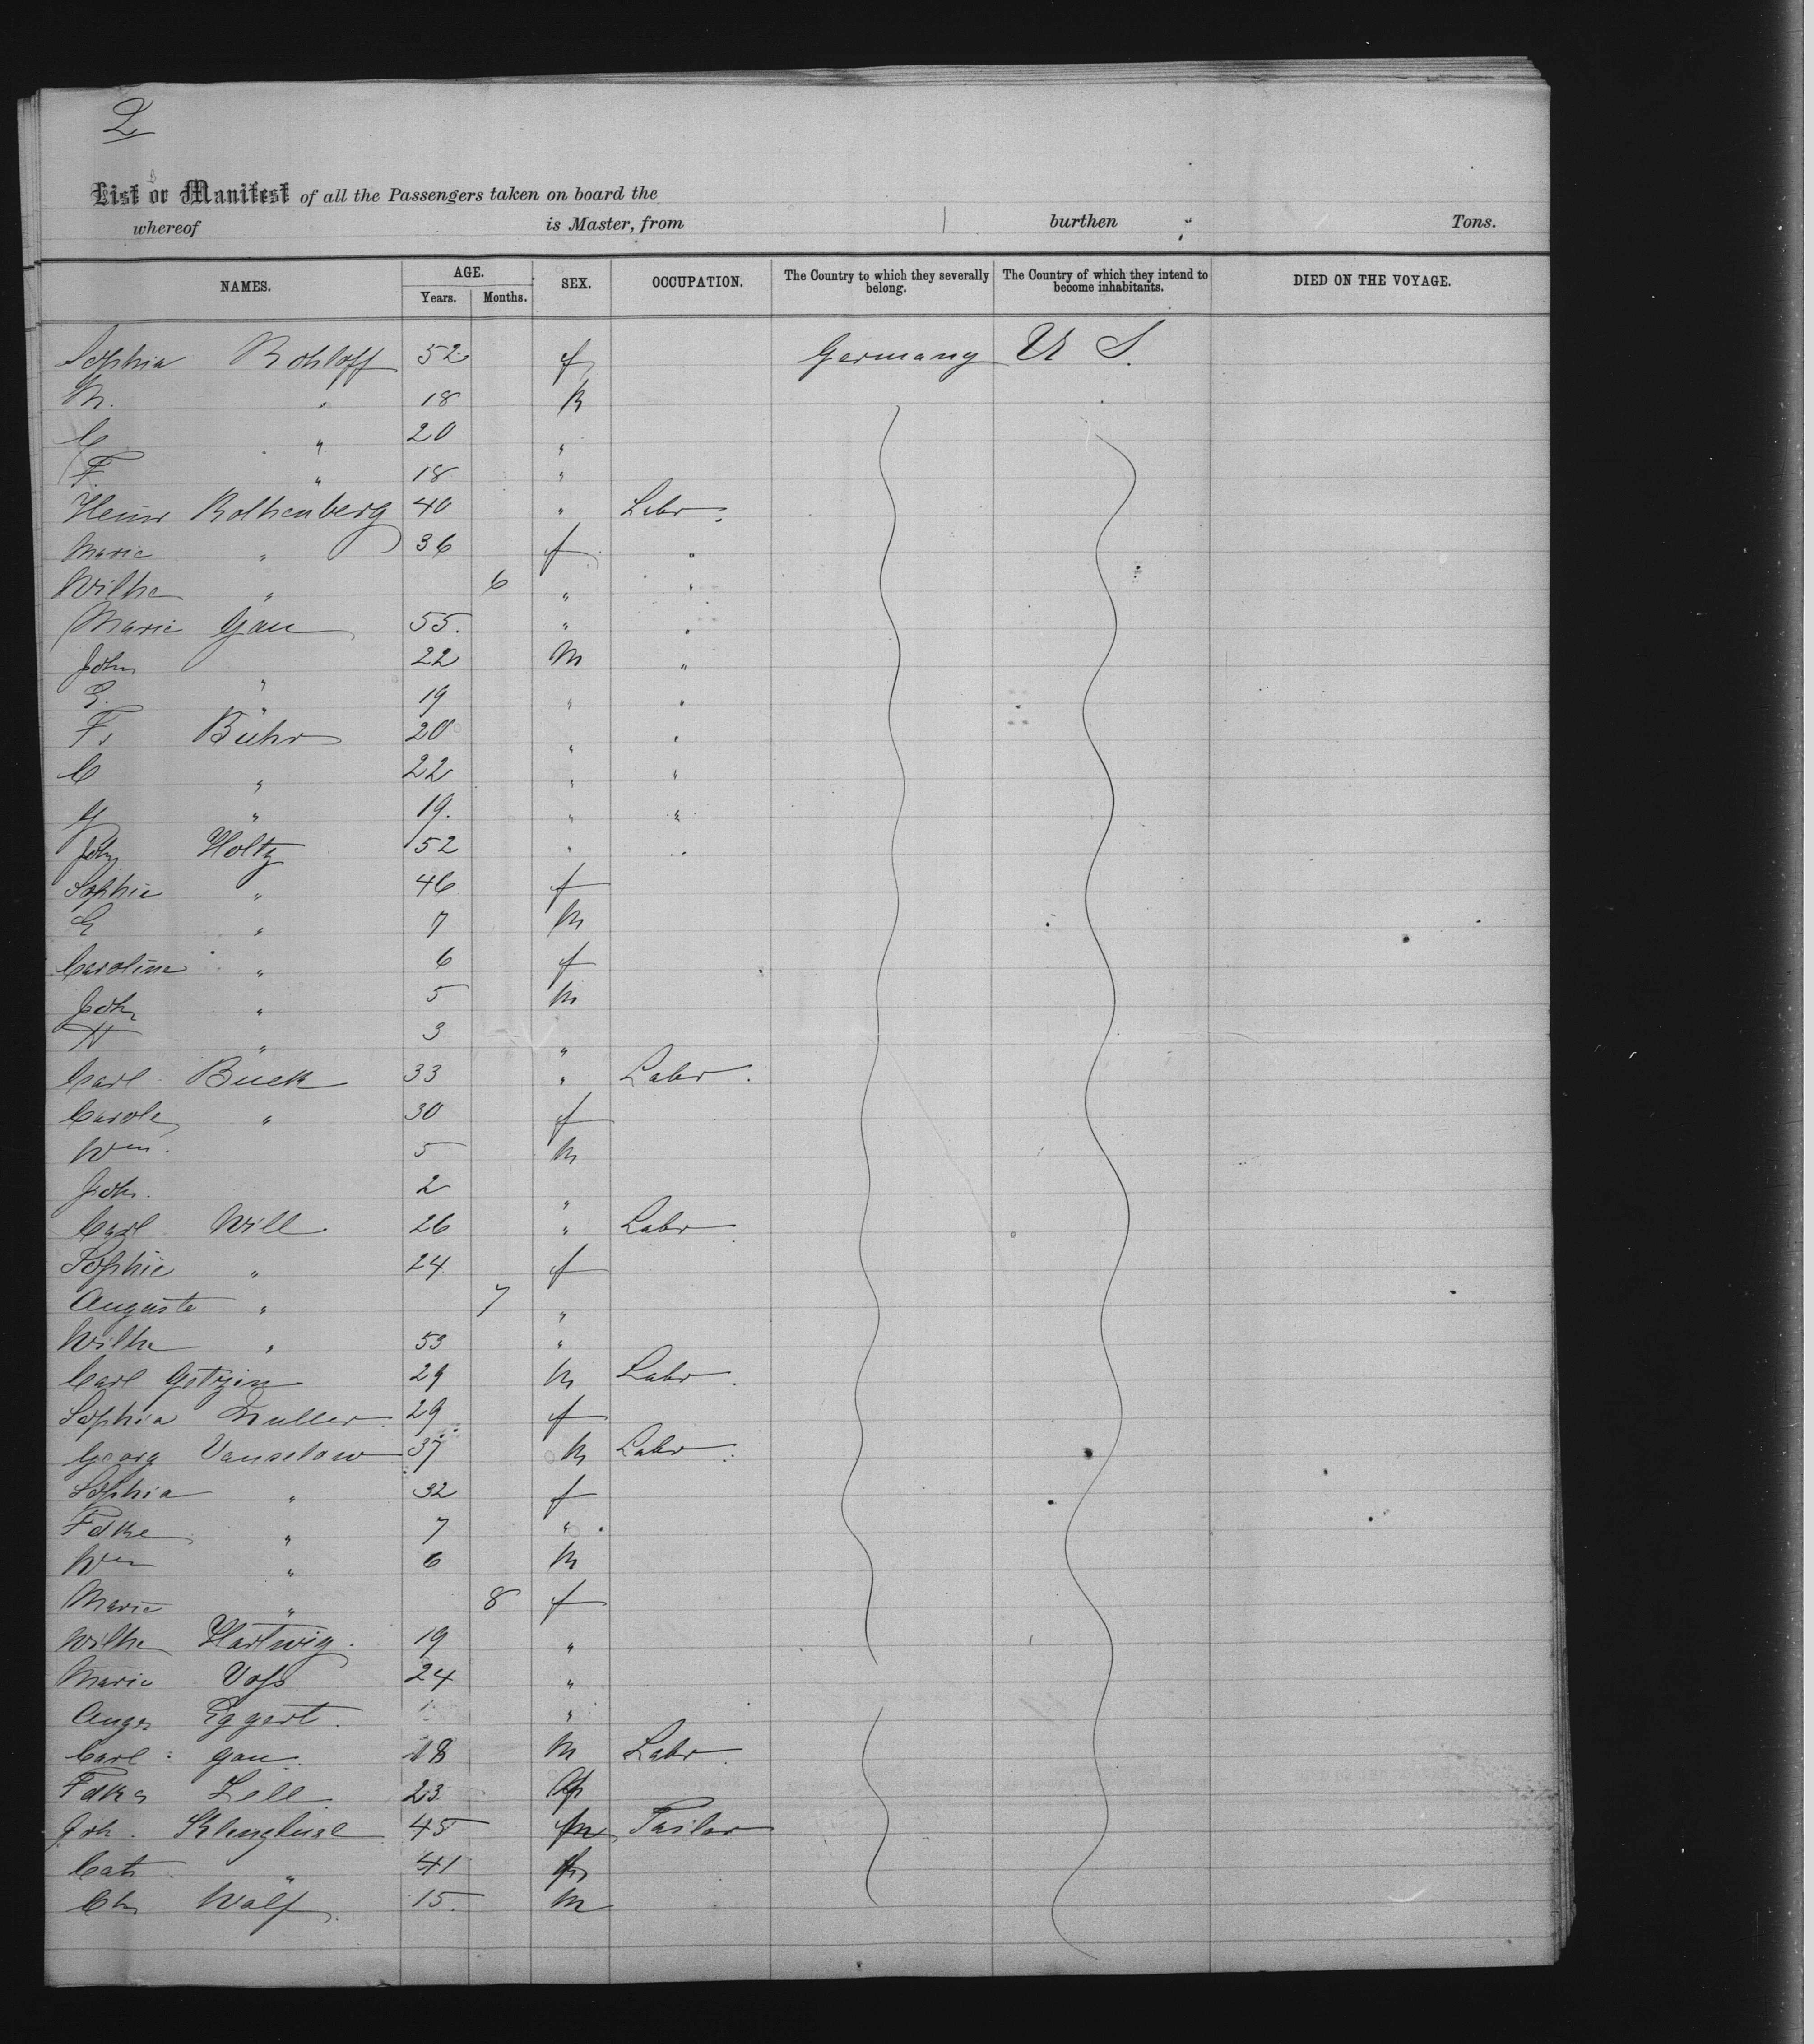 2
List or Manifest of all the Passengers taken on board the
whereof is Master, from burthen Tons.
NAMES. AGE. Years. Months. SEX. OCCUPATION. The Country to which they severally belong. The Country of which they intend to become inhabitants. DIED ON THE VOYAGE.
Sophia Rohloff 52 f Germany U S.
M. " 18 M
C " 20 "
F. " 18 "
Heinr Rothenberg 40 " Labr.
Marie " 36 f "
Wilhe " 6 " "
Marie Gau 55. " "
John " 22 M "
G. " 19 " "
F. Bühr 20 " "
C " 22 " "
G " 19. " "
John Holtz 52 " "
Sophie " 46 f
G " 7 M
Caroline " 6 f
Joh " 5 M
H " 3 "
Carl Buck 33 " Labr.
Carole " 30 f
Wm. 5 M
Joh. 2 "
Carl Will 26 " Labr
Sophie " 24 f
Auguste " 7 "
Wilhe " 53 "
Carl Gotzin 29 M Labr.
Sophia Muller 29 f
Georg Vanselow 37 M Labr.
Sophia " 32 f
Fdke " 7 "
Wm " 6 M
Marie " 8 f
Wilhe Hartwig. 19 "
Marie Voss 24 "
Auge Eggert. "
Carl Gau 18 M Labr.
Fdke Zell 23 f
Joh. 45 M Tailor
Cath " 41 f
Ch Wolf. 15. M